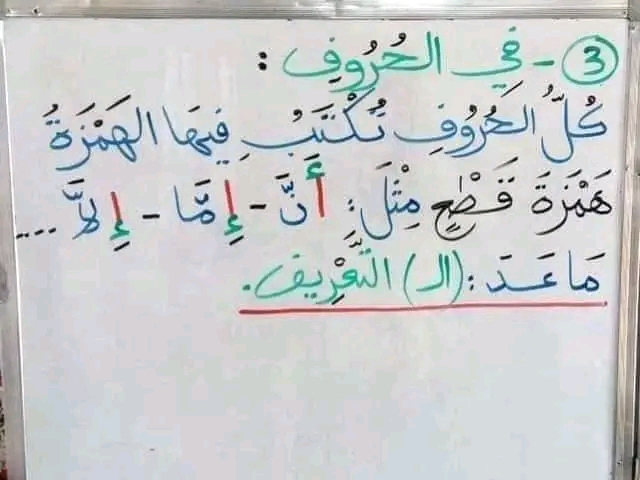 ③ - في الحُرُوفِ :
كُلُّ الحُرُوفِ تُكْتَبُ فِيهَا الهَمْزَةُ
هَمْزَةَ قَطْعٍ مِثْلَ: أَنَّ - إِمَّا - إِلَّا ...
مَا عَدَ : (الـ) التَّعْرِيف.